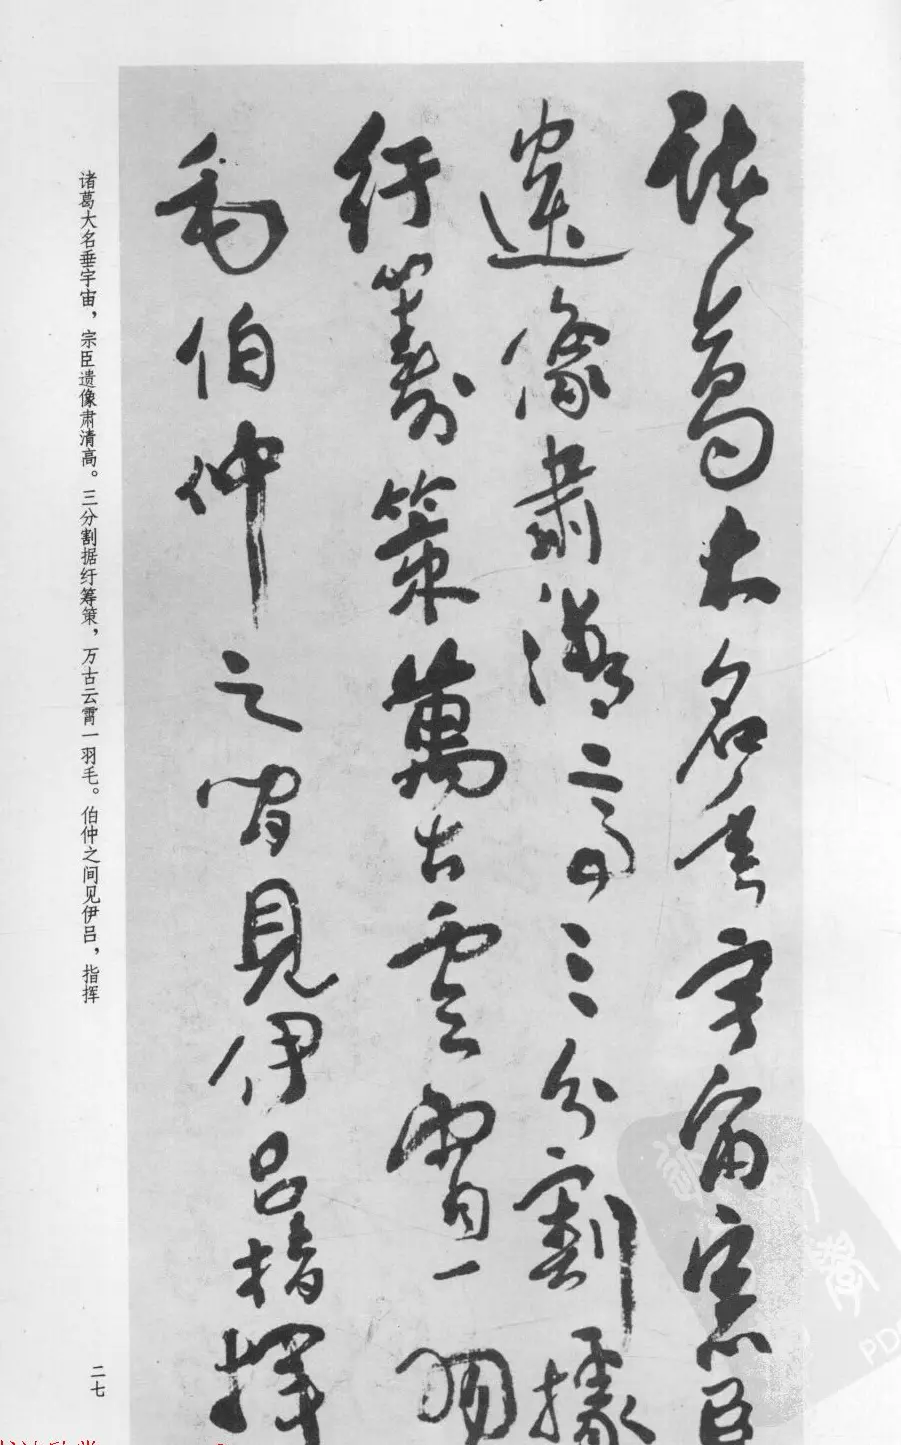 諸葛大名垂宇宙宗臣
遺像肅清高三分割據
紆籌策萬古雲霄一羽
毛伯仲之間見伊呂指揮
诸葛大名垂宇宙，宗臣遗像肃清高。三分割据纡筹策，万古云霄一羽毛。伯仲之间见伊吕，指挥
二七